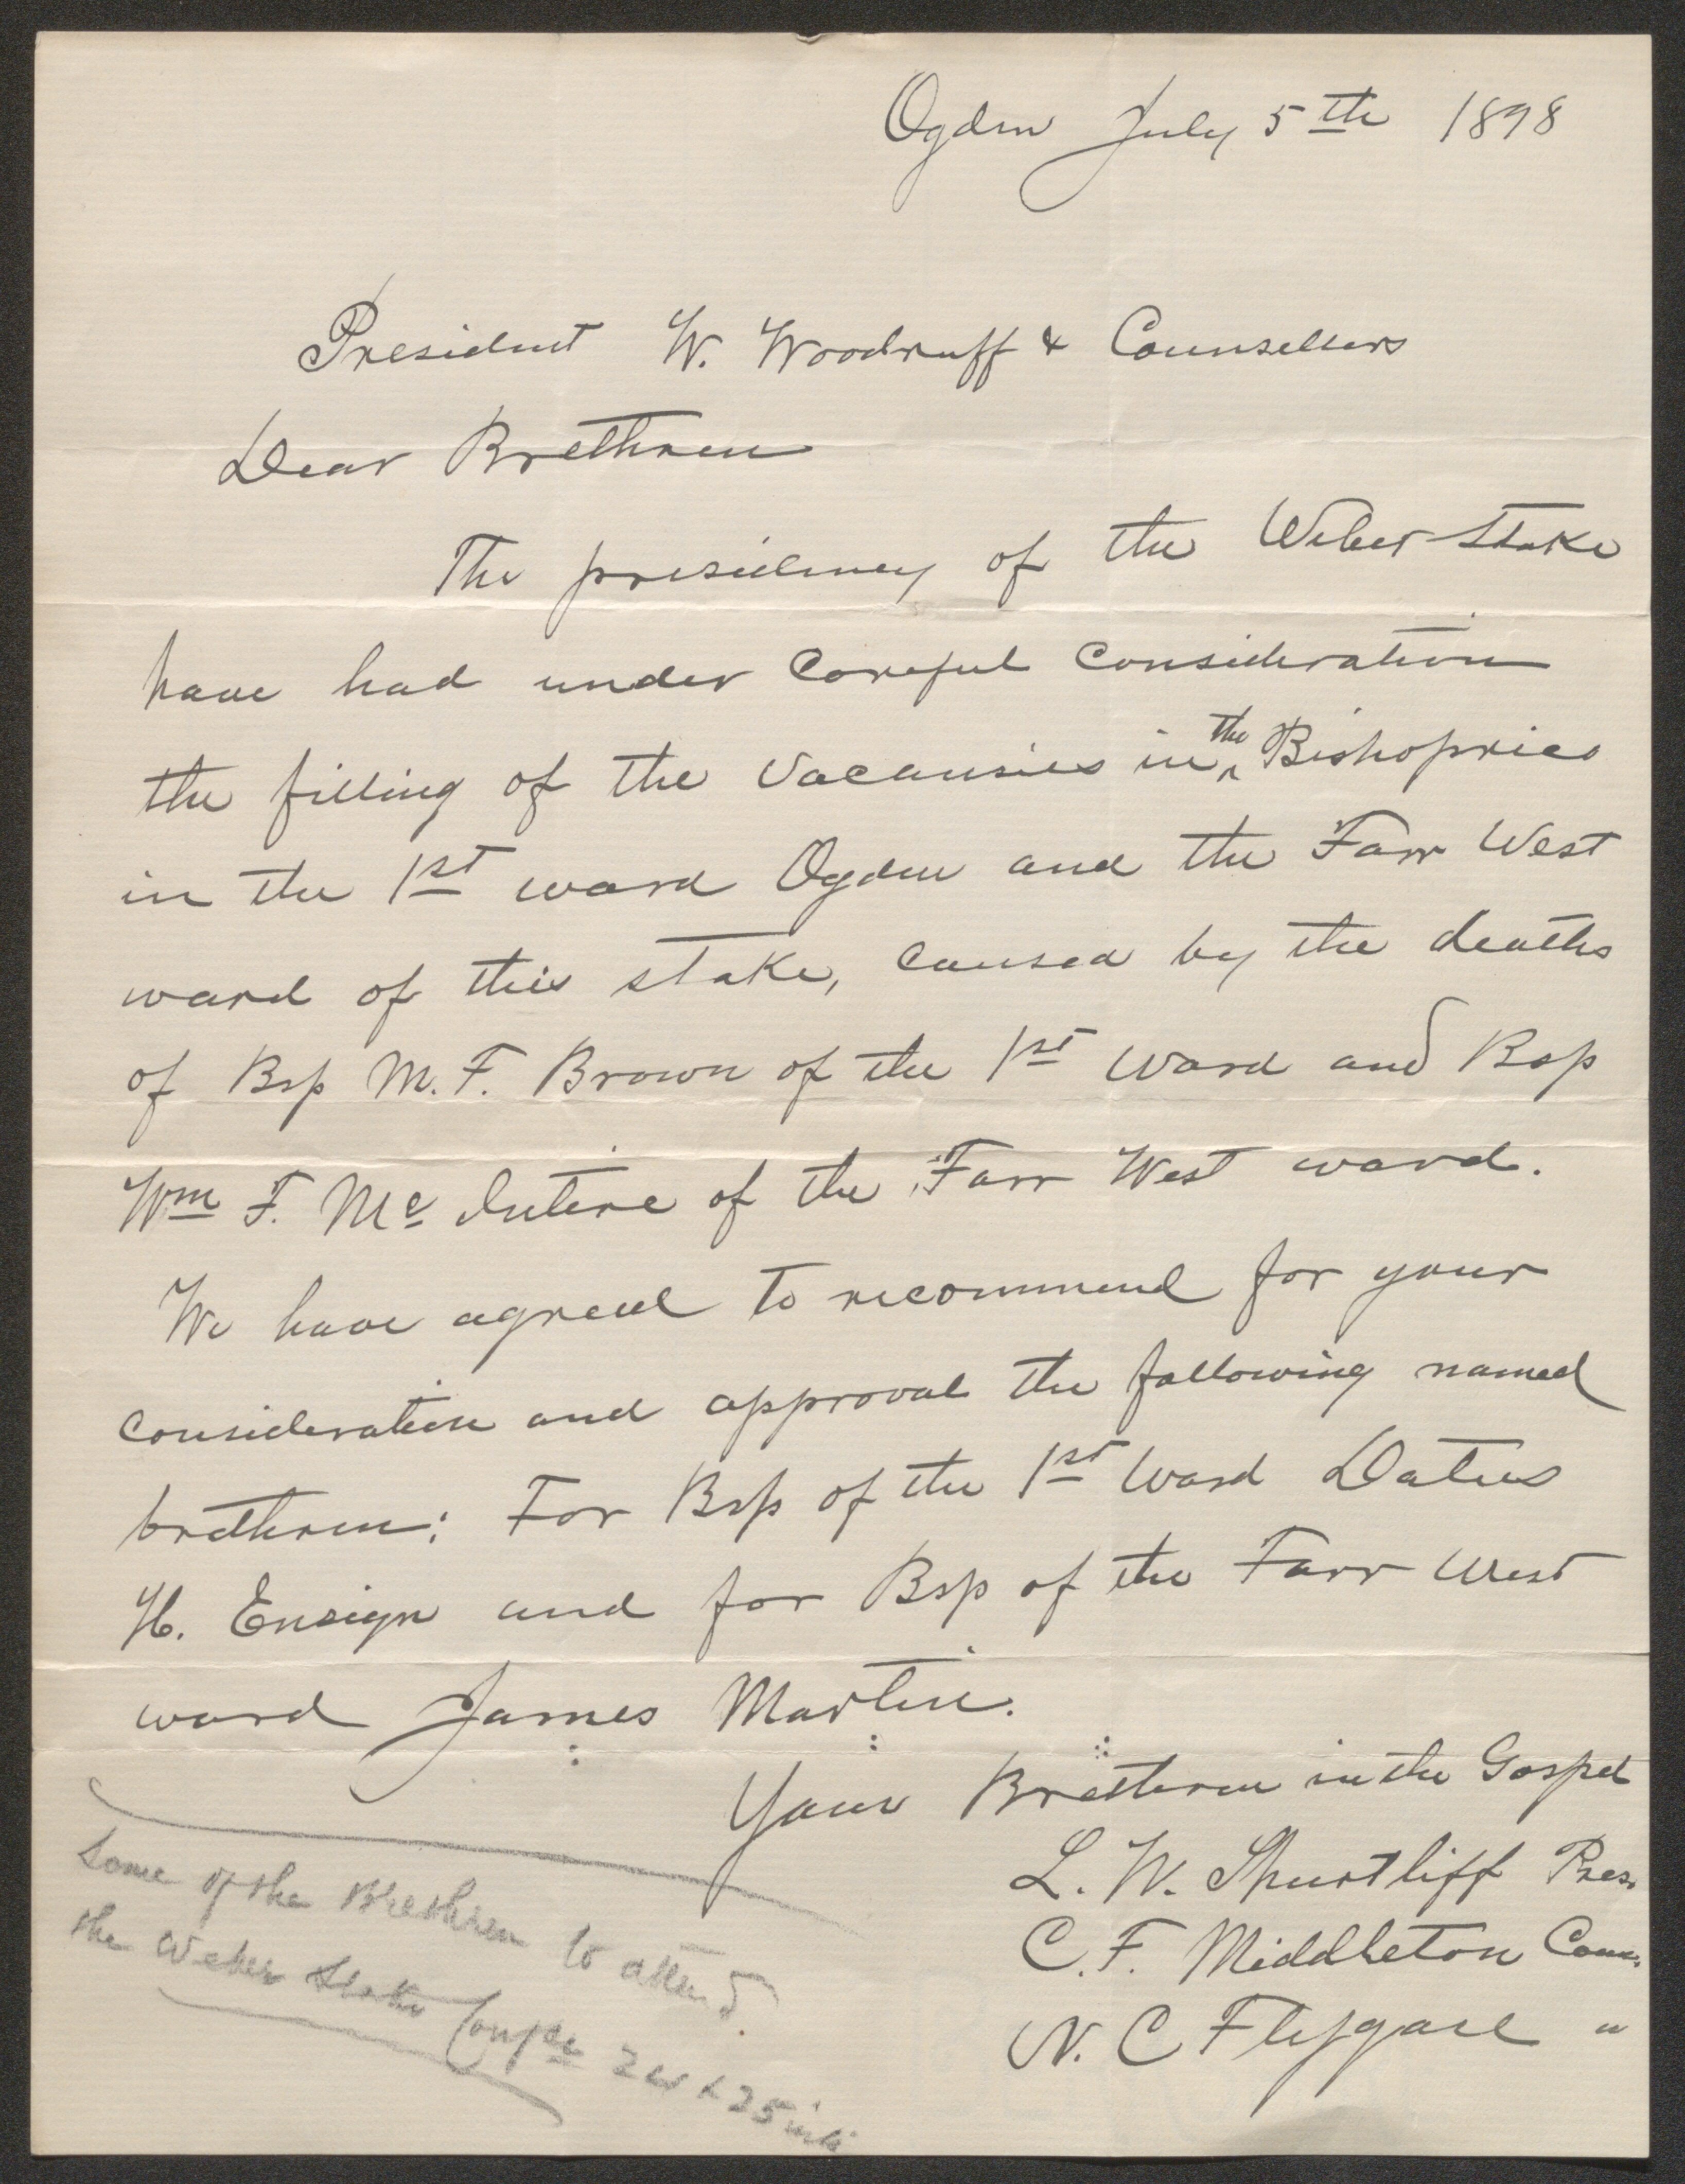 Ogden July 5th 1898
President W. Woodruff & Counsellors
Dear Brethren
The presidency of the Weber Stake
have had under Careful Consideration
the filling of the Vacansies in the Bishoprics
in the 1st ward Ogden and the Farr West
ward of this stake, Caused by the deaths
of Bsp M. F. Brown of the 1st Ward and Bsp
Wm F. Mc Intire of the Farr West ward.
We have agreed to recommend for your
Consideration and approval the following named
brethren: For Bsp of the 1st Ward Datus
H. Ensign and for Bsp of the Farr West
ward James Martin.
Your Brethren in the Gospel
L. W. Shurtliff Pres.
C. F. Middleton Coun.
N. C Flygare "
Some of the Brethren to attend
the Weber Stake Confce 24 & 25 inst